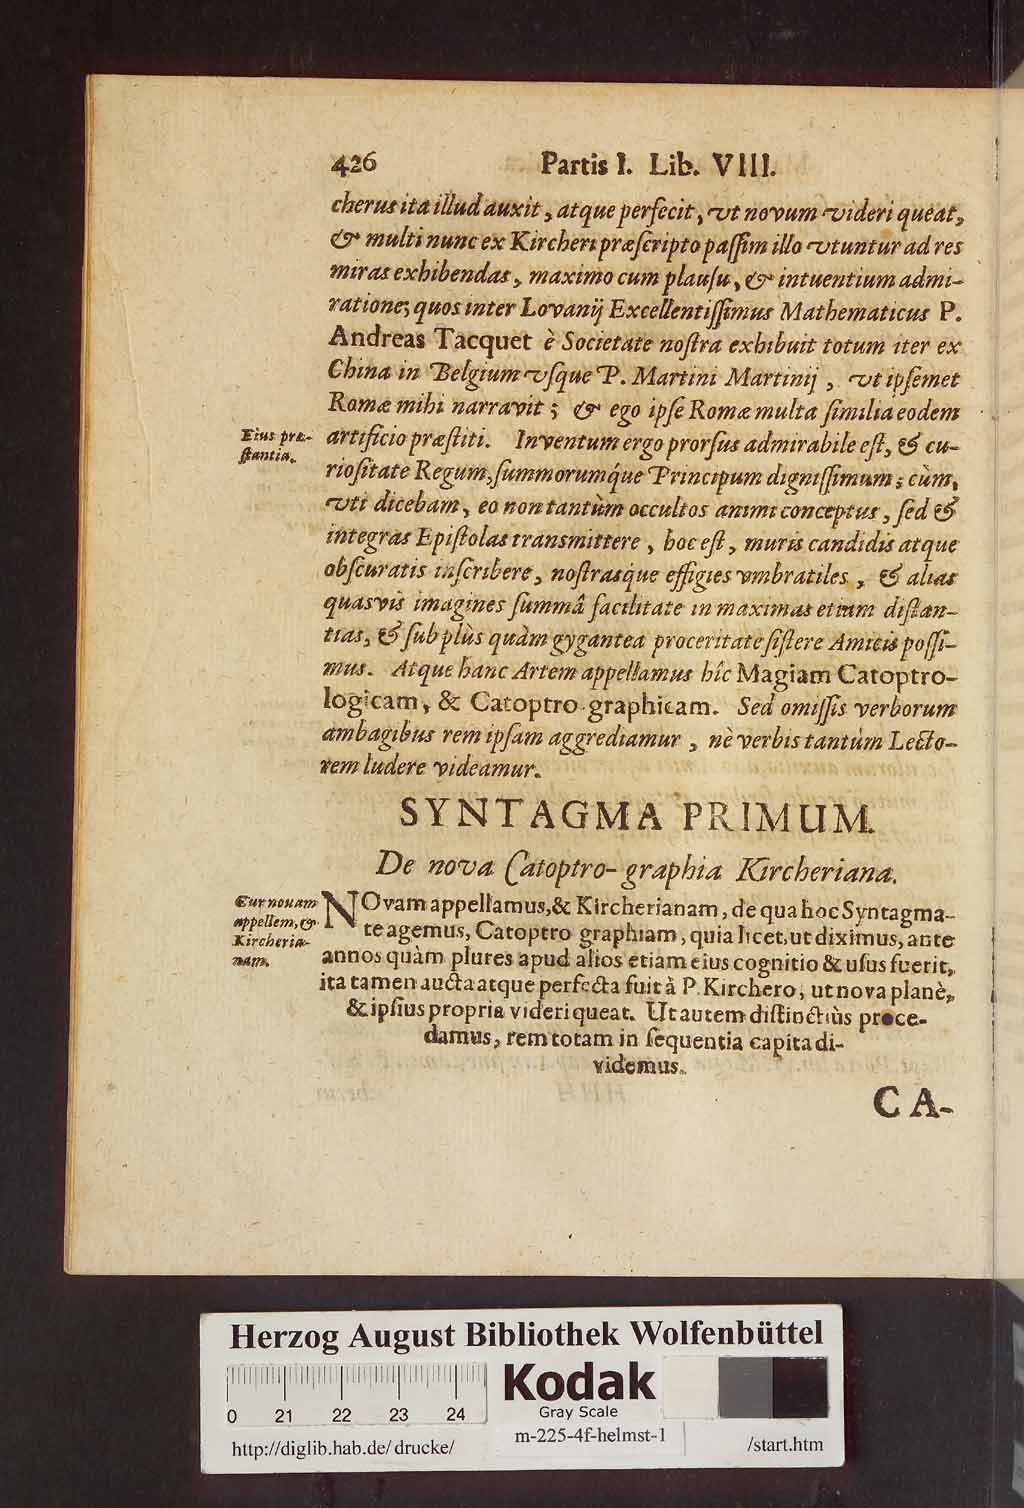 426 Partis I. Lib. VIII.
cherus ita illud auxit, atque perfecit, vt novum videri queat,
& multi nunc ex Kircheri præſcripto paſſim illo vtuntur ad res
miras exhibendas, maximo cum plauſu, & intuentium admi-
ratione; quos inter Lovanij Excellentiſſimus Mathematicus P.
Andreas Tacquet è Societate noſtra exhibuit totum iter ex
China in Belgium vſque P. Martini Martinij, vt ipſemet
Romæ mihi narravit; & ego ipſe Romæ multa ſimilia eodem
Eius præ-
ſtantia.
artificio præſtiti. Inventum ergo prorſus admirabile eſt, & cu-
rioſitate Regum, ſummorumq́ue Principum digniſſimum; cùm,
vti dicebam, eo non tantùm occultos animi conceptus, ſed &
integras Epiſtolas transmittere, hoc eſt, muris candidis atque
obſcuratis inſcribere, noſtrasque effigies vmbratiles, & alias
quasvis imagines ſummâ facilitate in maximas etiam diſtan-
tias, & ſub plùs quàm gygantea proceritate ſiſtere Amicis poſſi-
mus. Atque hanc Artem appellamus hîc Magiam Catoptro-
logicam, & Catoptro-graphicam. Sed omiſſis verborum
ambagibus rem ipſam aggrediamur, nè verbis tantùm Lecto-
rem ludere videamur.
SYNTAGMA PRIMUM.
De nova Catoptro-graphia Kircheriana.
Cur novam
appellem, &
Kircheria-
nam.
NOvam appellamus, & Kircherianam, de qua hoc Syntagma-
te agemus, Catoptro graphiam, quia licet, ut diximus, ante
annos quàm plures apud alios etiam eius cognitio & uſus fuerit,
ita tamen aucta atque perfecta fuit à P. Kirchero, ut nova planè,
& ipſius propria videri queat. Ut autem diſtinctiùs proce-
damus, rem totam in ſequentia capita di-
videmus.
CA-
Herzog August Bibliothek Wolfenbüttel
0 21 22 23 24
Kodak
Gray Scale
m-225-4f-helmst-1
http://diglib.hab.de/drucke/ /start.htm